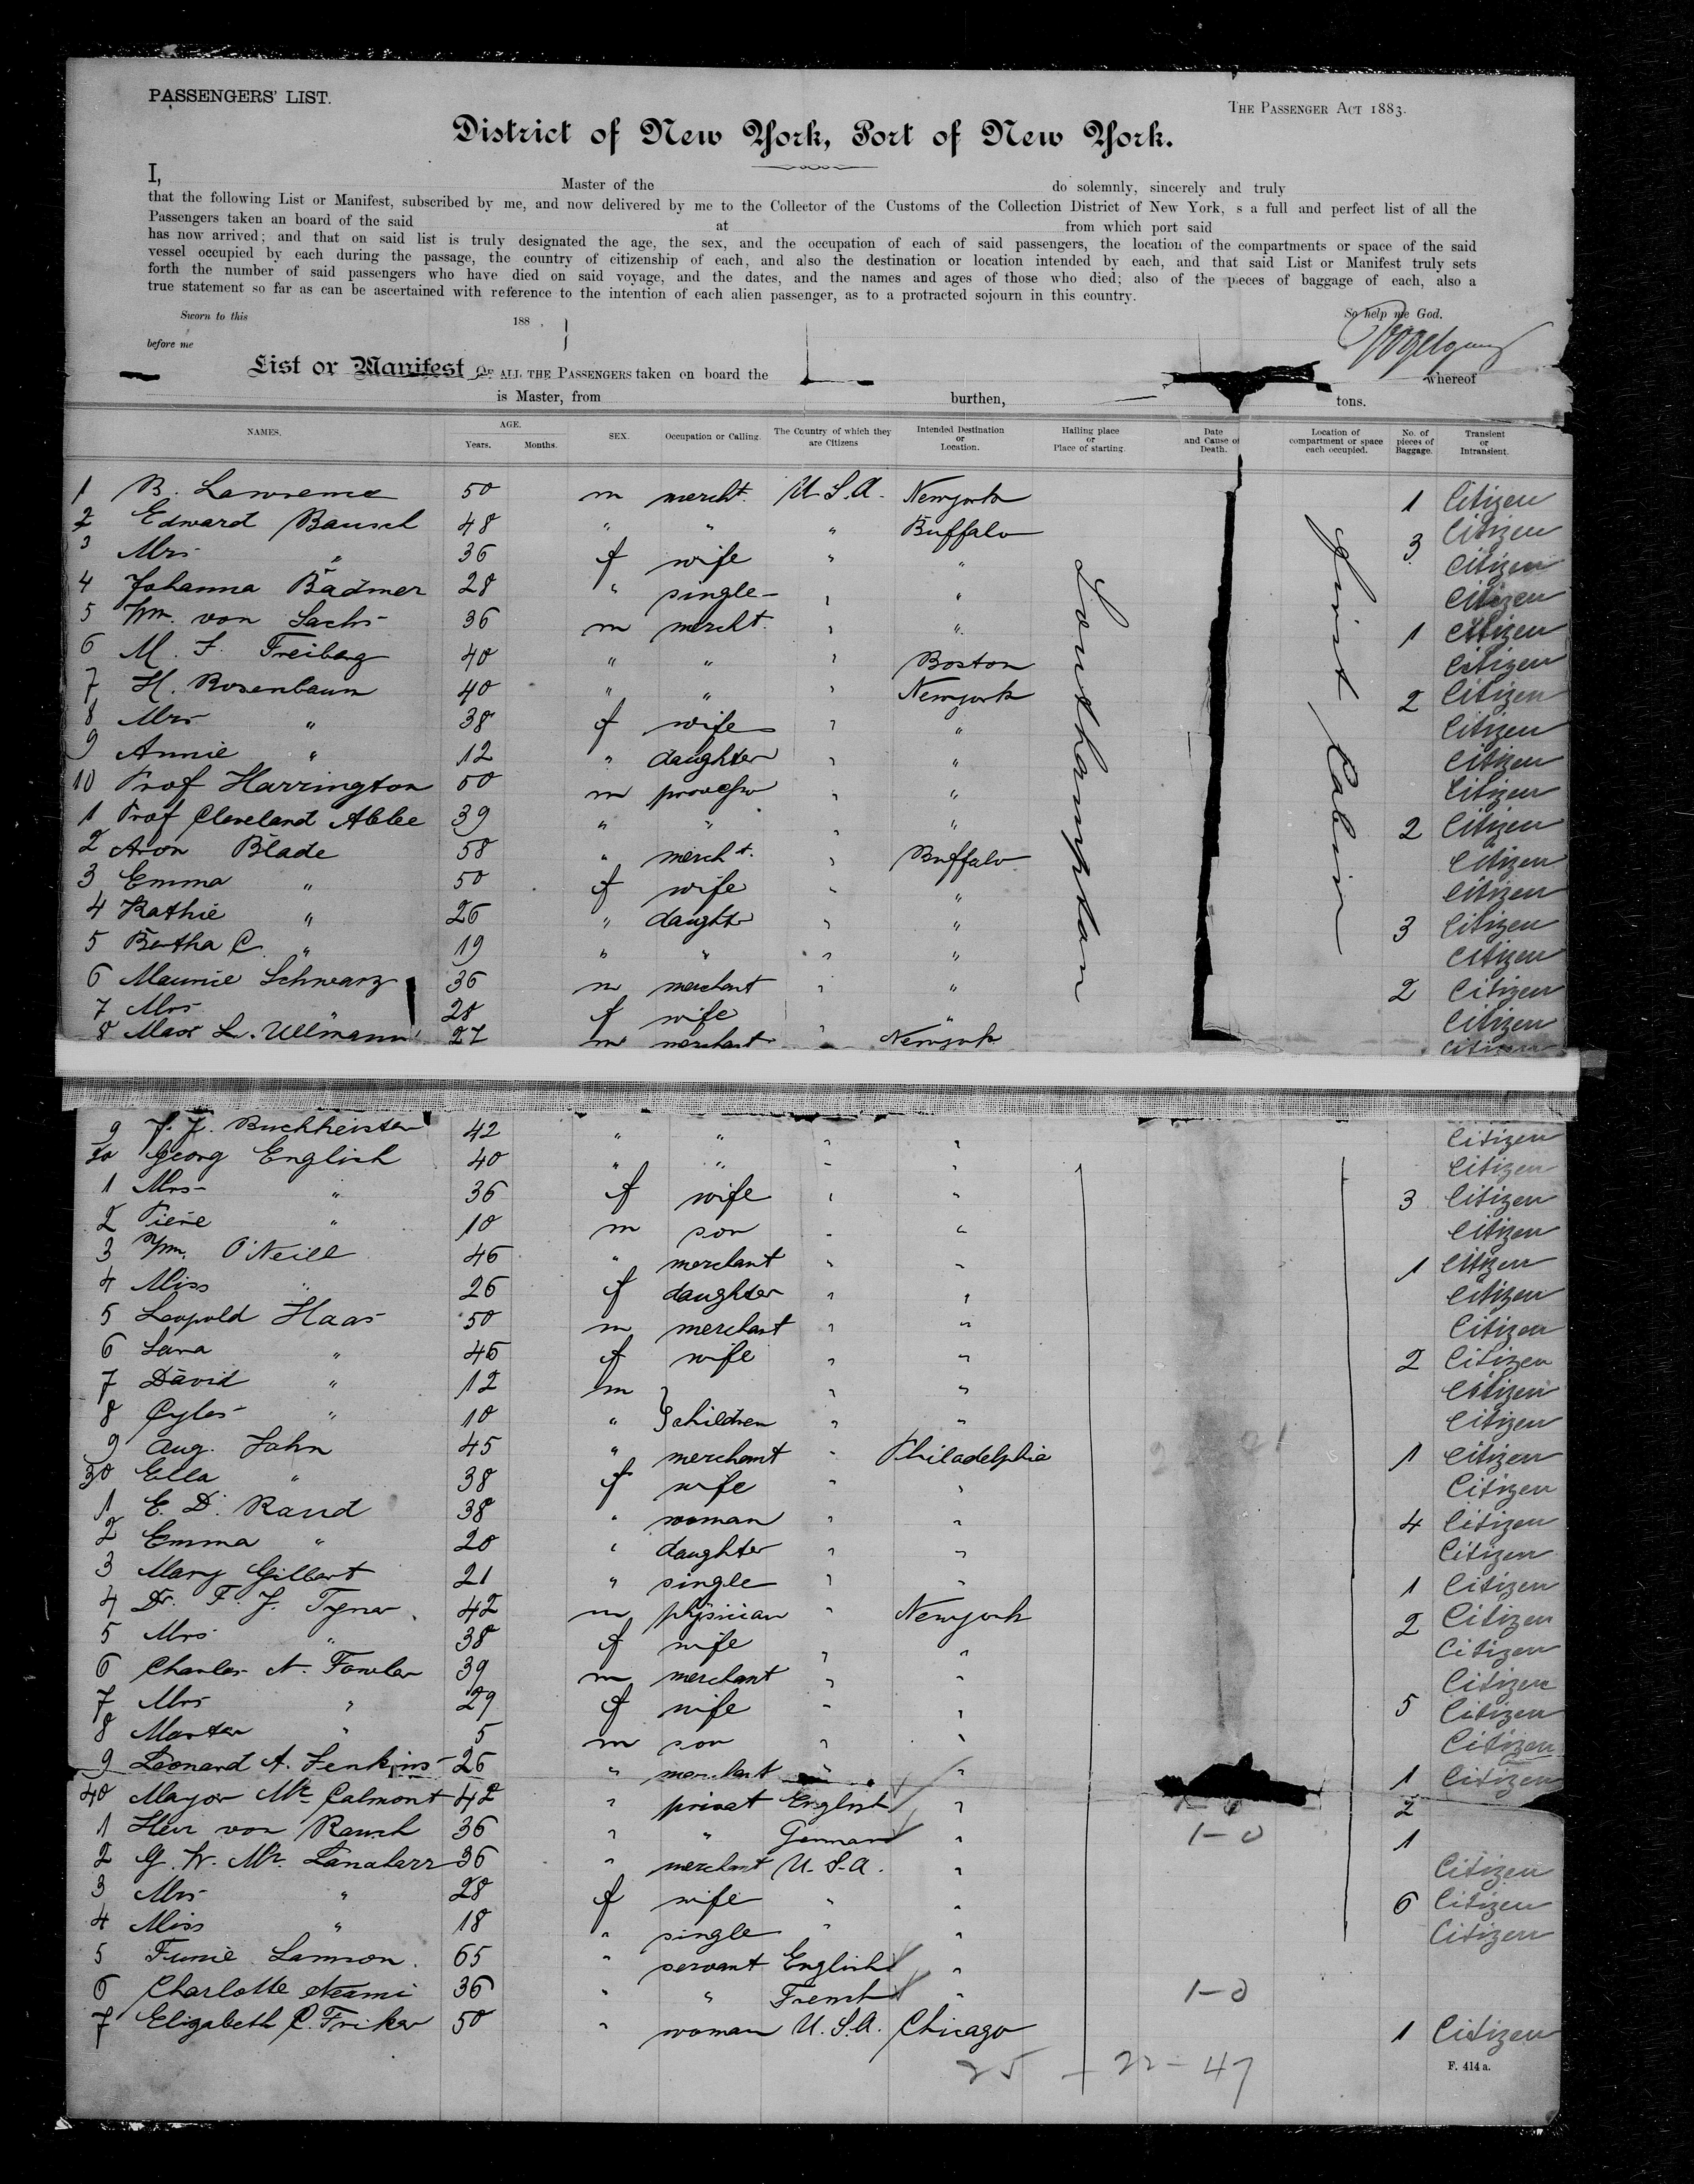 PASSENGERS' LIST.
THE PASSENGER ACT 1883.
District of New York, Port of New York.
I, Master of the do solemnly, sincerely and truly
that the following List or Manifest, subscribed by me, and now delivered by me to the Collector of the Customs of the Collection District of New York, s a full and perfect list of all the
Passengers taken an board of the said at from which port said
has now arrived; and that on said list is truly designated the age, the sex, and the occupation of each of said passengers, the location of the compartments or space of the said
vessel occupied by each during the passage, the country of citizenship of each, and also the destination or location intended by each, and that said List or Manifest truly sets
forth the number of said passengers who have died on said voyage, and the dates, and the names and ages of those who died; also of the pieces of baggage of each, also a
true statement so far as can be ascertained with reference to the intention of each alien passenger, as to a protracted sojourn in this country.
Sworn to this 188 , So help me God.
before me
List or Manifest OF ALL THE PASSENGERS taken on board the whereof
is Master, from burthen, tons.
NAMES. AGE. Years. Months. SEX. Occupation or Calling. The Country of which they are Citizens Intended Destination or Location. Hailing place or Place of starting. Date and Cause of Death. Location of compartment or space each occupied. No. of pieces of Baggage. Transient or Intransient.
Southampton
First Cabin
1 B. Lawrence 50 m mercht. U.S.A. Newyork 1 Citizen
2 Edward Bausch 48 " " " Buffalo 3 Citizen
3 Mrs " 36 f wife " " Citizen
4 Johanna Badmer 28 " single " " Citizen
5 Wm. von Sachs 36 m mercht. " " 1 Citizen
6 M. F. Freiberg 40 " " " Boston Citizen
7 H. Rosenbaum 40 " " " Newyork 2 Citizen
8 Mrs " 38 f wife " " Citizen
9 Annie " 12 " daughter " " Citizen
10 Prof Harrington 50 m " " Citizen
1 Prof Cleveland Abbe 39 " " " " 2 Citizen
2 Aron Blade 58 " mercht. " Buffalo Citizen
3 Emma " 50 f wife " " Citizen
4 Kathie " 26 " daughter " " 3 Citizen
5 Bertha C. " 19 " " " " Citizen
6 Maurice Schwarz 36 m merchant " " 2 Citizen
7 Mrs " 28 f wife " Citizen
8 Max L. Ullmann 27 m merchant " Newyork Citizen
9 F. J. Buchheister 42 " " " " Citizen
20 Georg English 40 " " " " Citizen
1 Mrs " 36 f wife " " 3 Citizen
2 " 10 m son " " Citizen
3 Wm. O'Neill 46 " merchant " " 1 Citizen
4 Miss " 26 f daughter " " Citizen
5 Leopold Haas 50 m merchant " " Citizen
6 " 46 f wife " " 2 Citizen
7 David " 12 m " " Citizen
8 " 10 " } children " " Citizen
9 Aug. Jahn 45 " merchant " Philadelphia 1 Citizen
30 Ella " 38 f wife " " Citizen
1 E. D. Rand 38 " woman " " 4 Citizen
2 Emma " 20 " daughter " " Citizen
3 Mary Gilbert 21 " single " " 1 Citizen
4 Dr. F. J. 42 m physician " Newyork 2 Citizen
5 Mrs " 38 f wife " " Citizen
6 Charles N. Fowler 39 m merchant " " Citizen
7 Mrs " 29 f wife " " 5 Citizen
8 Master " 5 m son " " Citizen
9 Leonard A. Jenkins 26 " merchant " " 1 Citizen
40 Mayor Mc Calmont 42 " privat English " 2
1 Herr von Rauch 36 " " German " 1-0 1
2 G. W. Mc. 36 " merchant U.S.A. " Citizen
3 Mrs " 28 f wife " " 6 Citizen
4 Miss " 18 " single " " Citizen
5 Lamson. 65 " servant English "
6 Charlotte 36 " " French " 1-0
7 Elizabeth C. Friker 50 " woman U.S.A. Chicago 1 Citizen
25 + 22 - 47
F. 414 a.